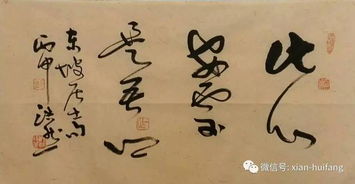 此心
安处
是吾乡
东坡居士句
丙申
微信号: xian-huifang